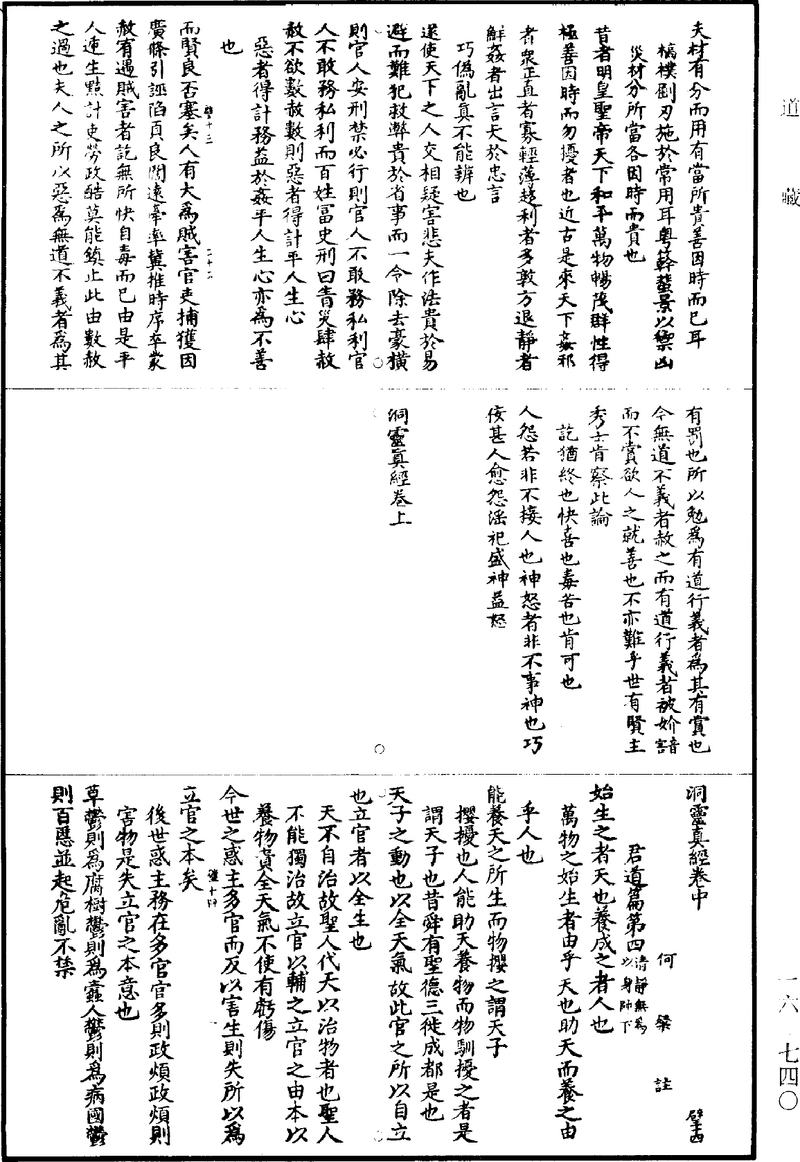 道藏
夫材有分而用有當所貴善因時而已耳
槁樸劙刃施於常用耳粵簳蠥景以禦凶
災材分所當各因時而貴也
昔者明皇聖帝天下和平萬物暢茂群性得
極善因時而勿擾者也近古是來天下姦邪
者衆正直者寡輕薄趍利者多敦方退靜者
鮮姦者出言夭於忠言
巧偽亂真不能辨也
遂使天下之人交相疑害悲夫作法貴於易
避而難犯救弊貴於省事而一令除去豪橫
則官人安刑禁必行則官人不敢務私利官
人不敢務私利而百姓冨史刑曰眚災肆赦
赦不欲數赦數則惡者得計平人生心
惡者得計務益於姦平人生心亦為不善
也
而賢良否塞矣人有大為賊害官吏捕獲因
廣條引誣陷貞良闊遠牽率冀推時序卒蒙
赦宥遇賊害者訖無所快自毒而已由是平
人連生黠計吏勞政酷莫能鎮止此由數赦
之過也夫人之所以惡為無道不義者為其
有罰也所以勉為有道行義者為其有賞也
今無道不義者赦之而有道行義者被妎諳
而不賞欲人之就善也不亦難乎世有賢主
秀士肯察此論
訖猶終也快喜也毒苦也肯可也
人怨若非不接人也神怒者非不事神也巧
佞甚人愈怨滛祀盛神益怒
洞靈真經卷上
洞靈真經卷中
何 粲 註
君道篇第四清靜無為以身帥下
始生之者天也養成之者人也
萬物之始生者由乎天也助天而養之由
乎人也
能養天之所生而物攖之謂天子
攖擾也人能助天養物而物馴擾之者是
謂天子也昔舜有聖德三徙成都是也
天子之動也以全天氣故此官之所以自立
也立官者以全生也
天不自治故聖人代天以治物者也聖人
不能獨治故立官以輔之立官之由本以
養物貴全天氣不使有虧傷
今世之惑主多官而反以害生則失所以為
立官之本矣
後世惑主務在多官官多則政煩政煩則
害物是失立官之本意也
草鬱則為腐樹鬱則為蠧人鬱則為病國鬱
則百慝並起危亂不禁
一六 七四〇